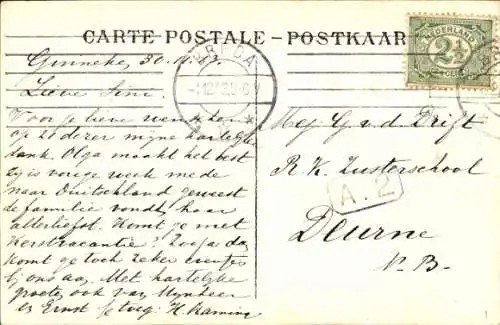 CARTE POSTALE - POSTKAART
NEDERLAND
2½
CENT
BREDA
Ginneken 30.11.13
Lieve Sini
Voor je lieve wenschen
op 20 dezer mijne hartelijke
dank. Olga maakt het best
zij is vorige week mede
naar Duitschland geweest
de familie vondt haar
allerliefst. Komt je met
Kerstvacantie? Zoo ja dan
komt ge toch zeker eventjes
bij ons aan. Met hartelijke
groeten ook van Mijnheer
en Ernst
Mej G. v. d. Drift
R. K. Zusterschool
A. 2
Deurne
N. B.